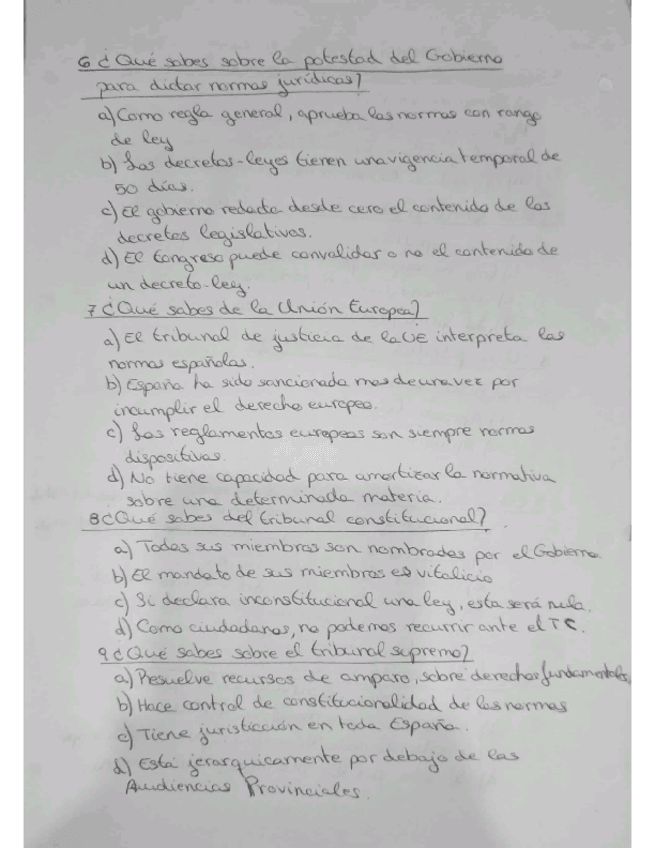 6 ¿Qué sabes sobre la potestad del Gobierno
para dictar normas jurídicas?
a) Como regla general, aprueba las normas con rango
de ley
b) Los decretos-leyes tienen una vigencia temporal de
50 días.
c) El gobierno redacta desde cero el contenido de los
decretos legislativos.
d) El Congreso puede convalidar o no el contenido de
un decreto-ley.
7 ¿Qué sabes de la Unión Europea?
a) El tribunal de justicia de la UE interpreta las
normas españolas.
b) España ha sido sancionada mas de una vez por
incumplir el derecho europeo.
c) Los reglamentos europeos son siempre normas
dispositivas.
d) No tiene capacidad para amortizar la normativa
sobre una determinada materia.
8 ¿Qué sabes del tribunal constitucional?
a) Todos sus miembros son nombrados por el Gobierno
b) El mandato de sus miembros es vitalicio
c) Si declara inconstitucional una ley, esta será nula.
d) Como ciudadanos, no podemos recurrir ante el TC.
9 ¿Qué sabes sobre el tribunal supremo?
a) Resuelve recursos de amparo, sobre derechos fundamentales,
b) Hace control de constitucionalidad de las normas
c) Tiene juristicción en toda España.
d) Está jerarquicamente por debajo de las
Audiencias Provinciales.